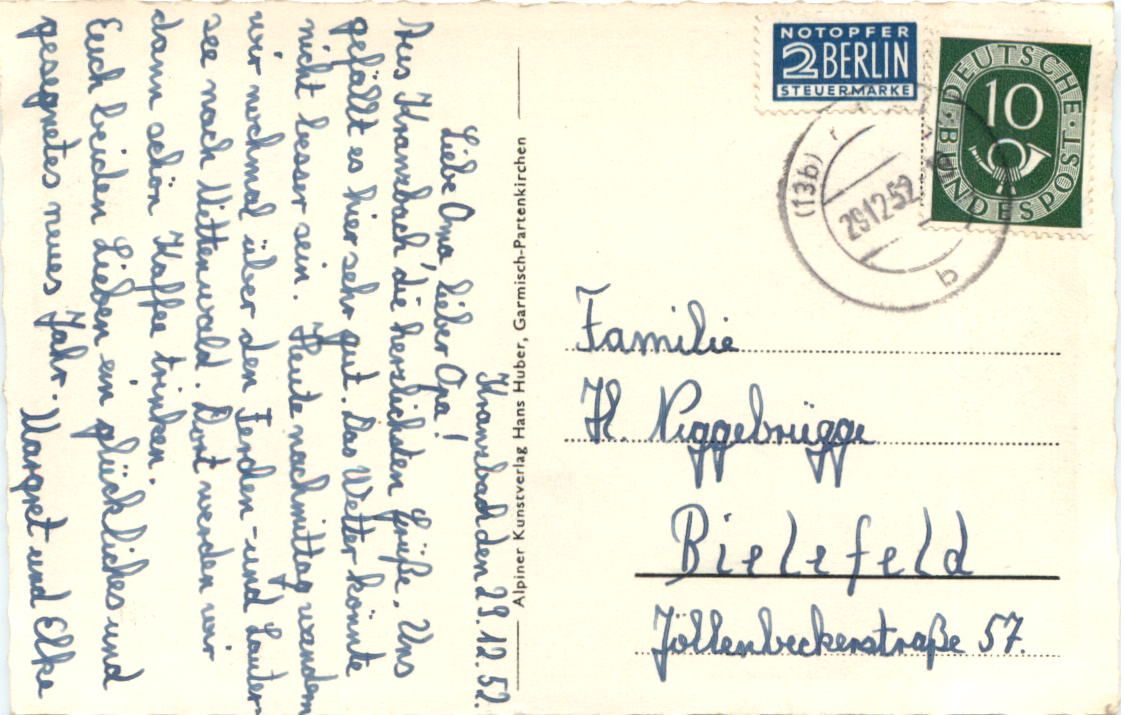 Kranzbach den 29.12.52.
Liebe Oma, lieber Opa!
Aus Kranzbach die herzlichsten Grüße. Uns
gefällt es hier sehr gut. Das Wetter könnte
nicht besser sein. Heute nachmittag wandern
wir nochmal über den Ferchen- und Lauter-
see nach Mittenwald. Dort werden wir
dann schön Kaffee trinken.
Euch beiden Lieben ein glückliches und
gesegnetes neues Jahr. Margret und Elke
Alpiner Kunstverlag Hans Huber, Garmisch-Partenkirchen
NOTOPFER
2 BERLIN
STEUERMARKE
DEUTSCHE
10
BUNDESPOST
(13b)
29.12.52
b
Familie
H. Niggebrügge
Bielefeld
Jöllenbeckerstraße 57.